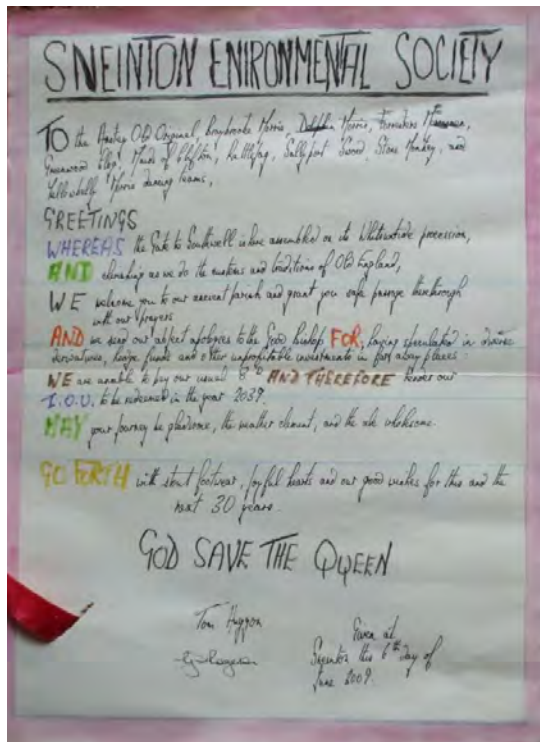 SNEINTON ENIRONMENTAL SOCIETY
TO the Anstey Old Original, Braybrooke Morris, Dolphin Morris, Foresters Morris,
Greenwood Step, Maids of Clifton, Rattlejag, Sallyport Sword, Stone Monkey, and
Yellowbelly Morris dancing teams,
GREETINGS
WHEREAS the Gate to Southwell is here assembled on its Whitsuntide procession,
AND cherishing as we do the customs and traditions of Old England,
WE welcome you to our ancient parish and grant you safe passage therethrough
with our prayers
AND we send our abject apologies to the Good bishop FOR, having speculated in diverse
derivatives, hedge funds and other unprofitable investments in far away places:
WE are unable to pay our usual AND THEREFORE our
I.O.U. to be redeemed in the year 2039.
MAY your journey be gladsome, the weather clement, and the ale wholesome.
GO FORTH with stout footwear, joyful hearts and our good wishes for this and the
next 30 years.
GOD SAVE THE QUEEN
Tom Huggon
Given at
Sneinton this 6th Day of
June 2009.